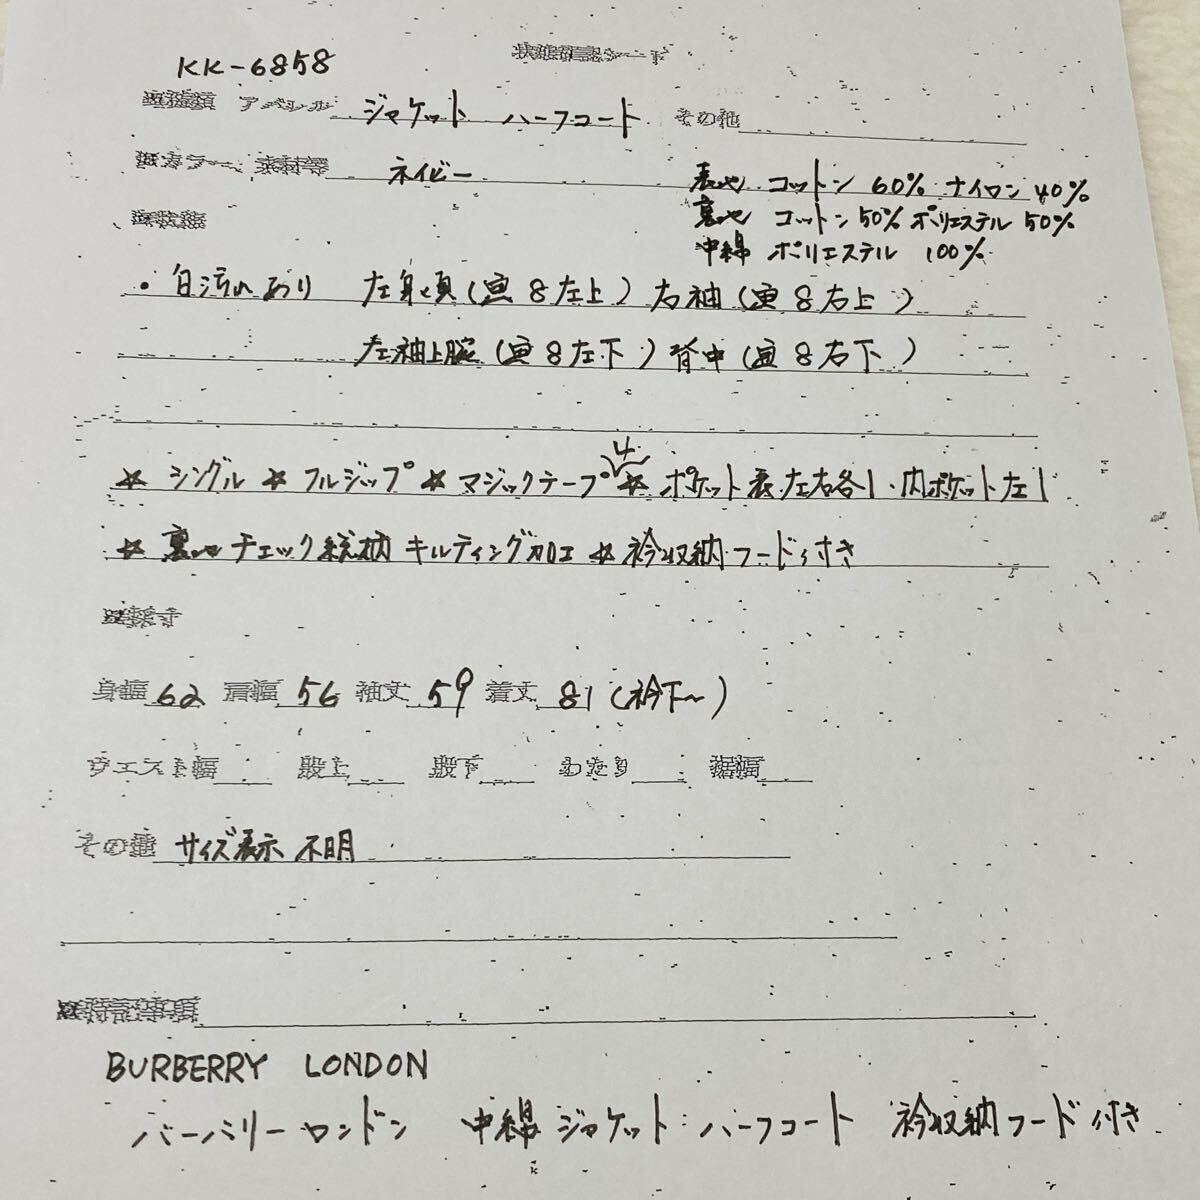 KK-6858
アパレル ジャケット ハーフコート その他
カラー・素材等 ネイビー
表地 コットン 60% ナイロン 40%
裏地 コットン 50% ポリエステル 50%
中綿 ポリエステル 100%
・白汚れあり 左身頃(画8左上) 右袖(画8右上)
左袖上腕(画8左下) 背中(画8右下)
4
☆ シングル ☆ フルジップ ☆ マジックテープ ☆ ポケット表左右各1・内ポケット左1
☆ 裏地チェック総柄キルティング加工 ☆ 衿収納フード付き
採寸
身幅 62 肩幅 56 袖丈 59 着丈 81 (衿下〜)
ウエスト幅 股上 股下 わたり 裾幅
その他 サイズ表示 不明
特記事項
BURBERRY LONDON
バーバリーロンドン 中綿ジャケット・ハーフコート 衿収納フード付き